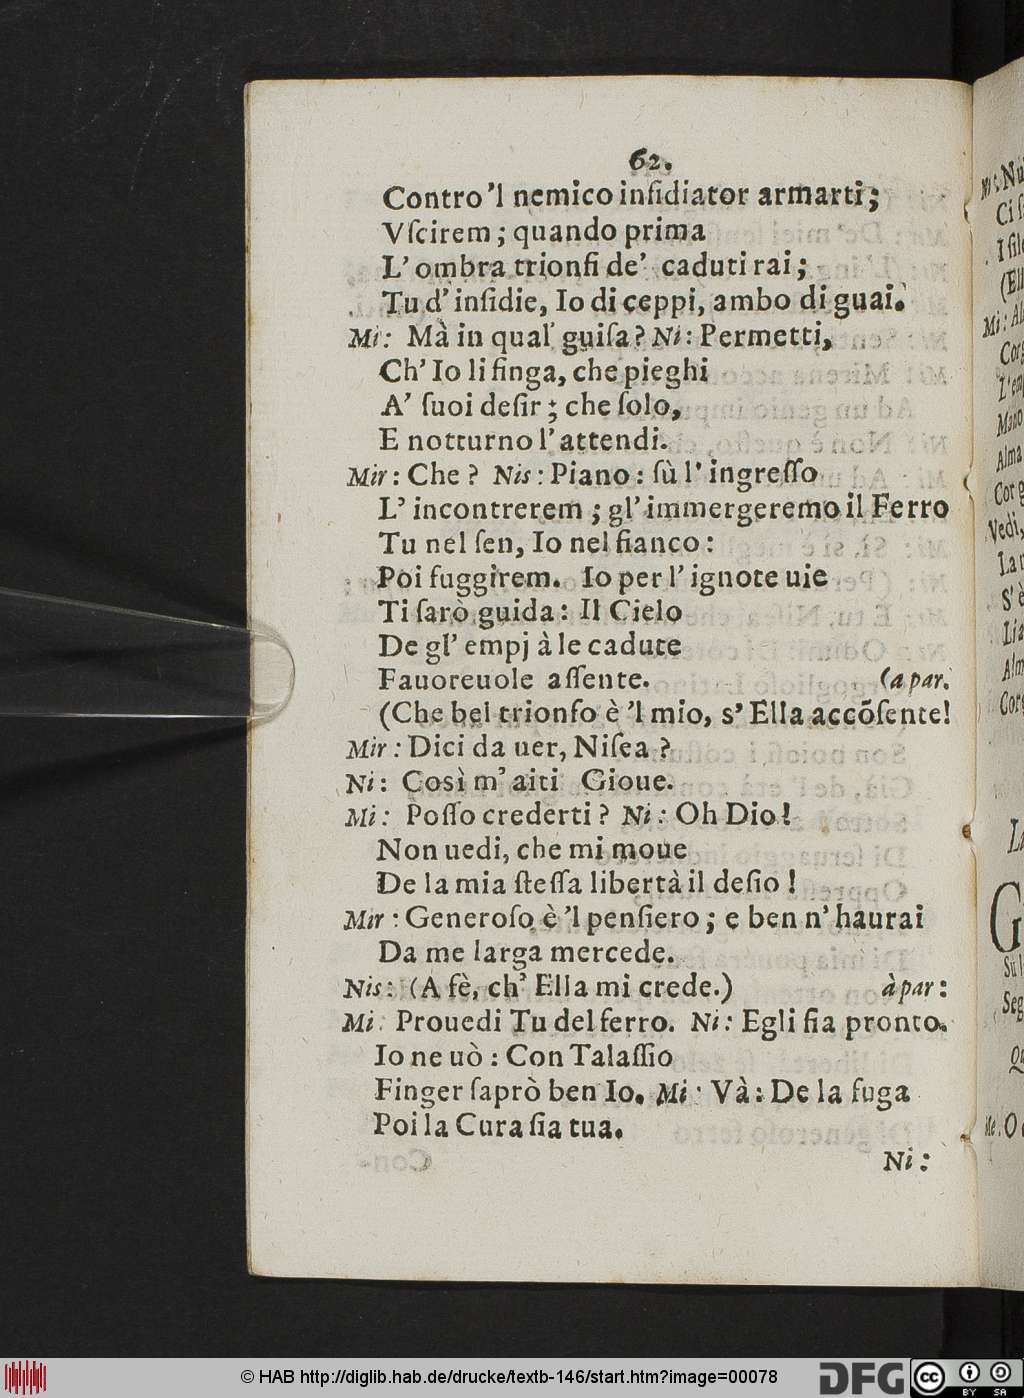 62.
Contro 'l nemico inſidiator armarti;
Vſcirem; quando prima
L' ombra trionfi de' caduti rai;
Tu d' inſidie, Io di ceppi, ambo di guai.
Mi: Mà in qual guiſa? Ni: Permetti,
Ch' Io li finga, che pieghi
A' ſuoi deſir; che ſolo,
E notturno l' attendi.
Mir: Che? Nis: Piano: ſù l' ingreſſo
L' incontrerem; gl' immergeremo il Ferro
Tu nel ſen, Io nel fianco:
Poi fuggirem. Io per l' ignote uie
Ti ſarò guida: Il Cielo
De gl' empj à le cadute
Fauoreuole aſſente. (a par.
(Che bel trionfo è 'l mio, s' Ella accõſente!
Mir: Dici da uer, Niſea?
Ni: Così m' aiti Gioue.
Mi: Poſſo crederti? Ni: Oh Dio!
Non uedi, che mi moue
De la mia ſteſſa libertà il deſio!
Mir: Generoſo è 'l penſiero; e ben n' haurai
Da me larga mercede.
Nis: (A fè, ch' Ella mi crede.) à par:
Mi: Prouedi Tu del ferro. Ni: Egli ſia pronto.
Io ne uò: Con Talaſſio
Finger ſaprò ben Io. Mi: Và: De la fuga
Poi la Cura ſia tua.
Ni:
© HAB http://diglib.hab.de/drucke/textb-146/start.htm?image=00078
DFG
cc
BY SA